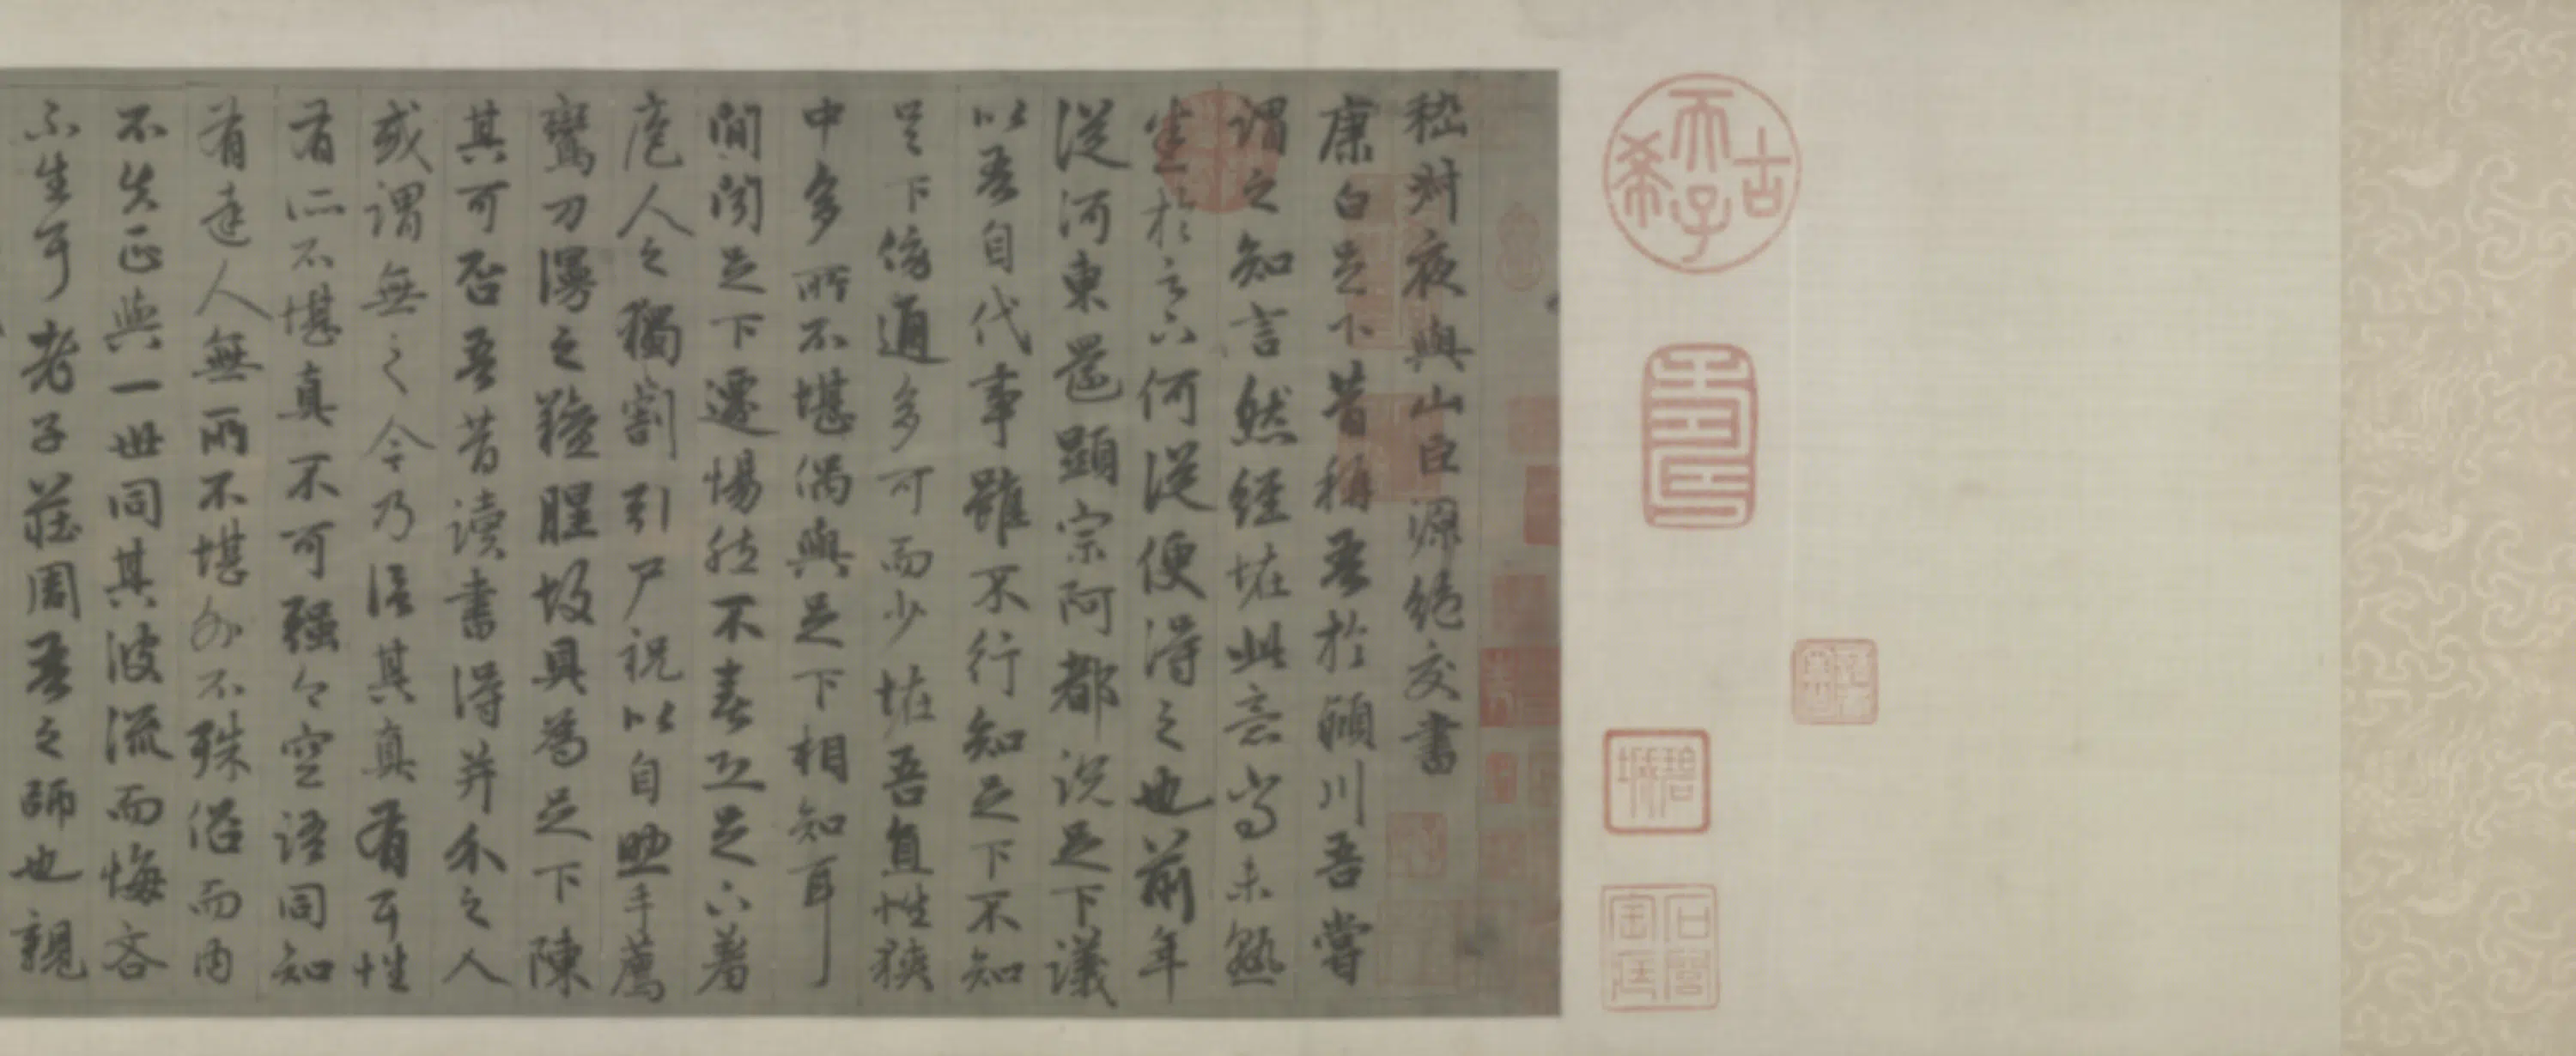 古希天子
嵇叔夜與山巨源絕交書
康白足下昔稱吾於潁川吾嘗
謂之知言然經怪此意尚未熟
悉於足下何從便得之也前年
從河東還顯宗阿都說足下議
以吾自代事雖不行知足下不知
足下傍通多可而少怪吾直性狹
中多所不堪偶與足下相知耳
間聞足下遷惕然不喜恐足下羞
庖人之獨割引尸祝以自助手薦
鸞刀漫之羶腥故具為足下陳
其可否吾昔讀書得并介之人
或謂無之今乃信其真有耳性
有所不堪真不可強今空語同知
有達人無所不堪外不殊俗而內
不失正與一世同其波流而悔吝
不生耳老子莊周吾之師也親